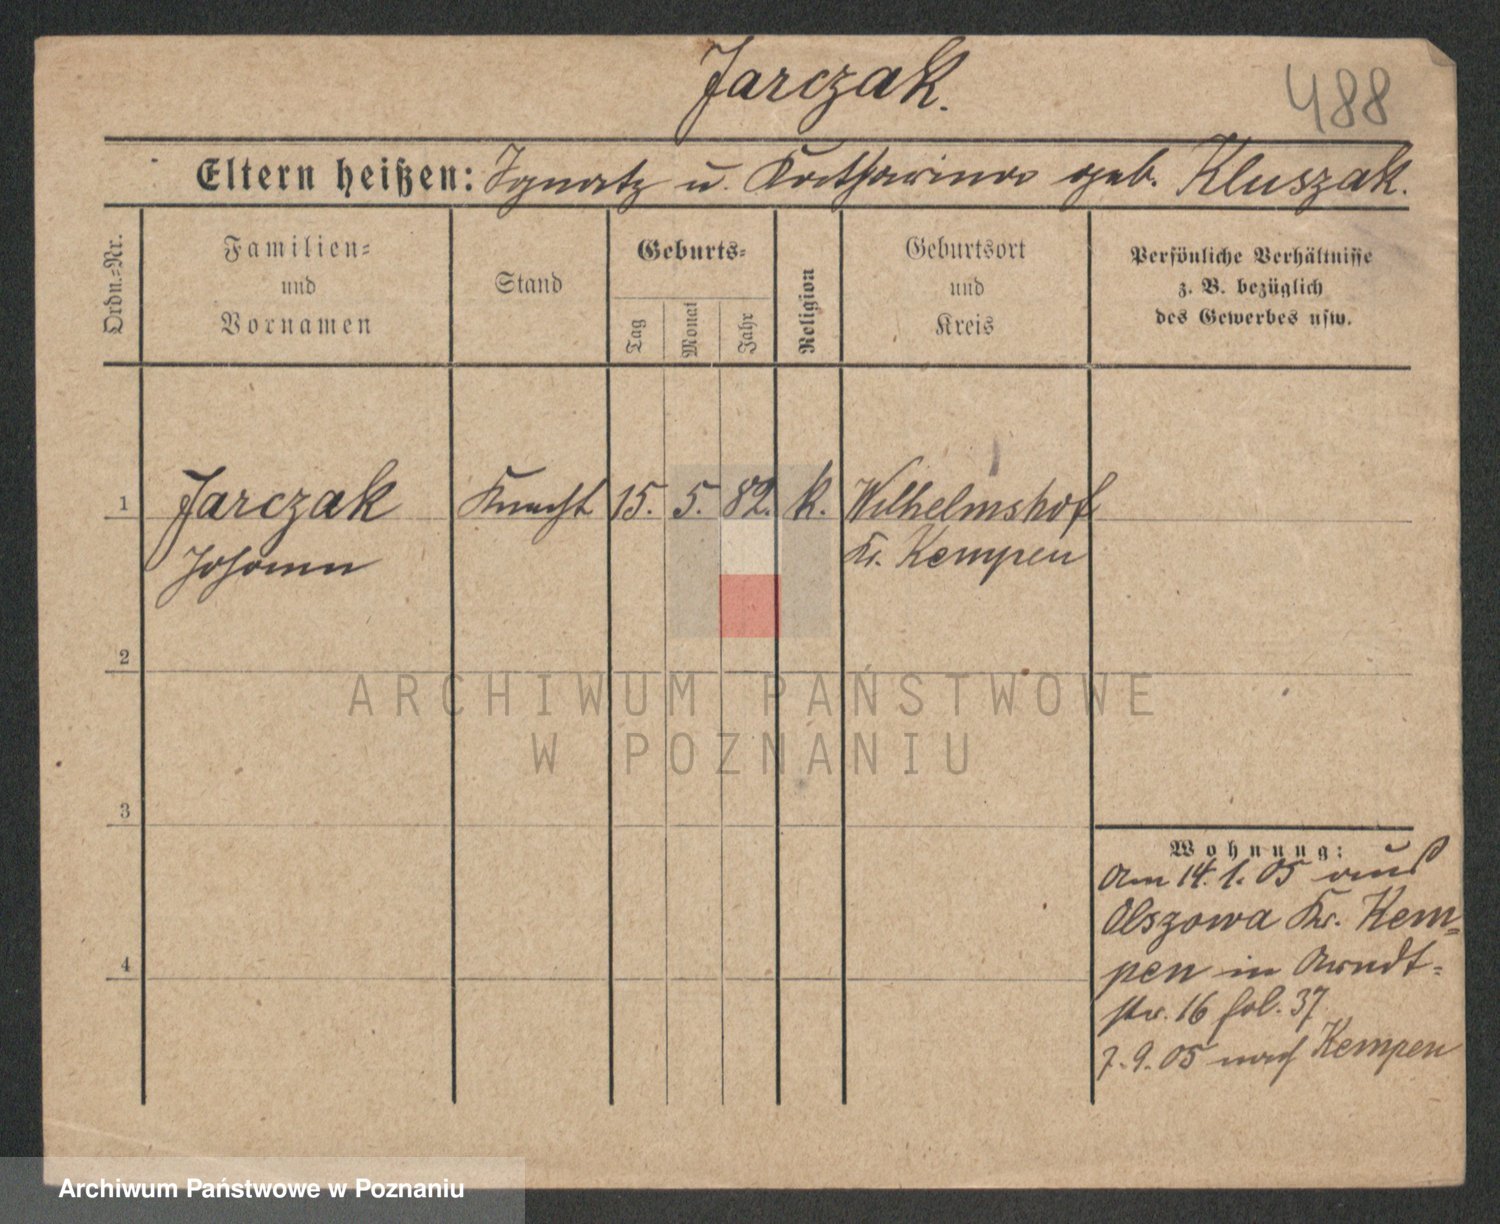 Jarczak.
488
Eltern heißen: Ignatz u. Katharina geb. Kluszak.
Ordn.=Nr.
Familien=
und
Vornamen
Stand
Geburts=
Tag
Monat
Jahr
Religion
Geburtsort
und
Kreis
Persönliche Verhältnisse
z. B. bezüglich
des Gewerbes usw.
1 Jarczak Knecht 15. 5. 82. k. Wilhelmshof
Johann Kr. Kempen
2
ARCHIWUM PAŃSTWOWE
W POZNANIU
3
Wohnung:
Am 14. 1. 05 aus
Olszowa Kr. Kem=
pen in Arndt=
4
str. 16 fol. 37
7. 9. 05 nach Kempen
Archiwum Państwowe w Poznaniu